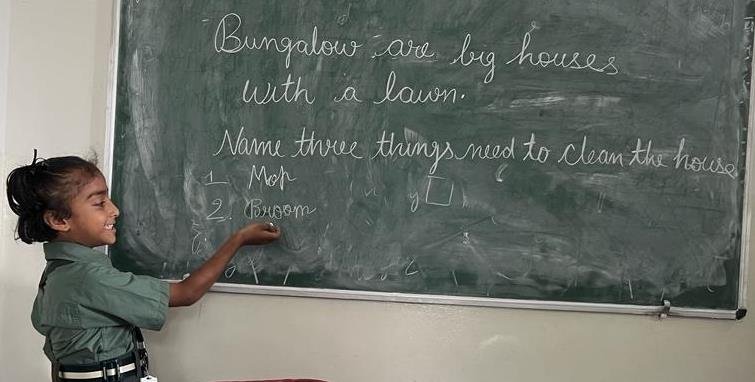 Bungalow are big houses
with a lawn.
Name three things need to clean the house
1 Mop
2. Broom